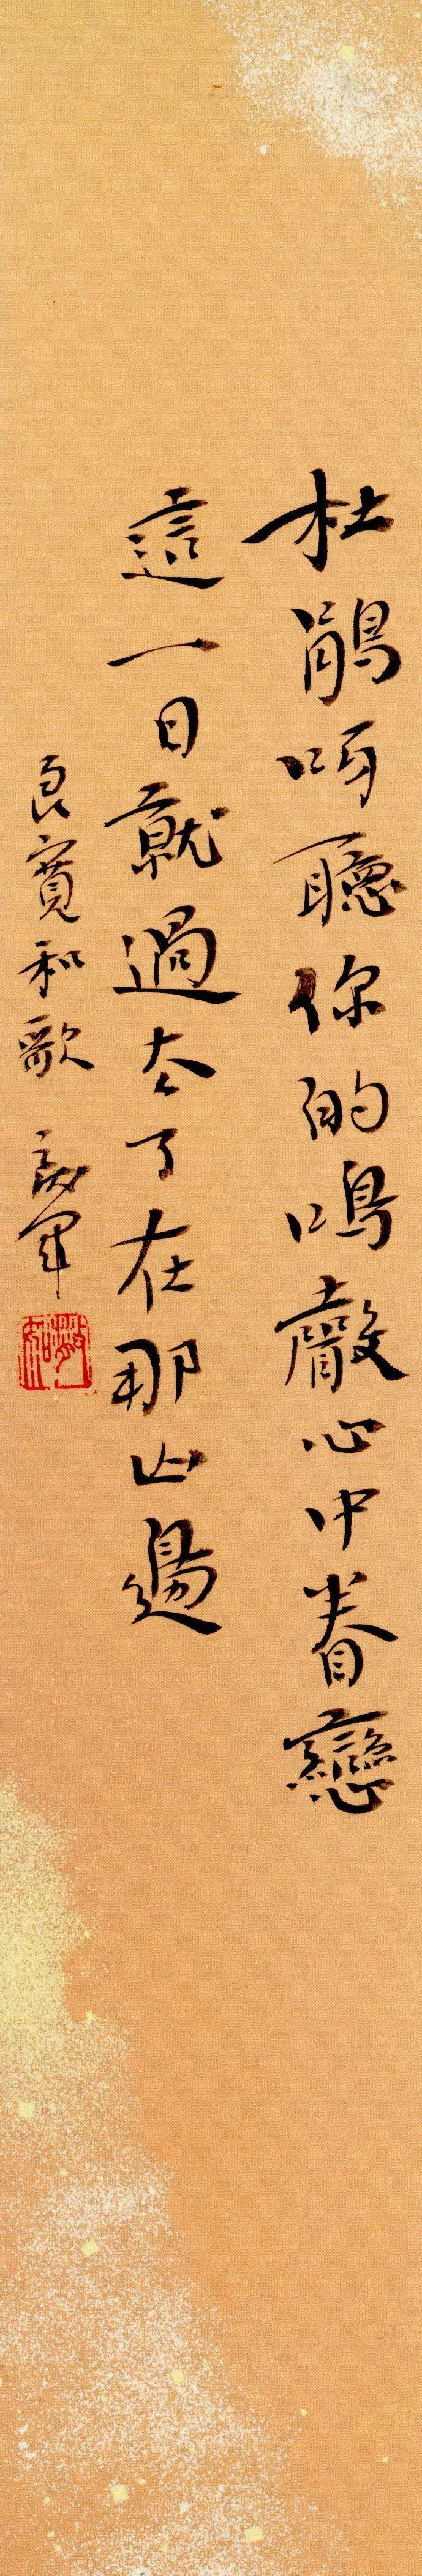 杜鵑呵聽你的鳴聲心中眷戀
這一日就過去了在那山邊
良寬和歌